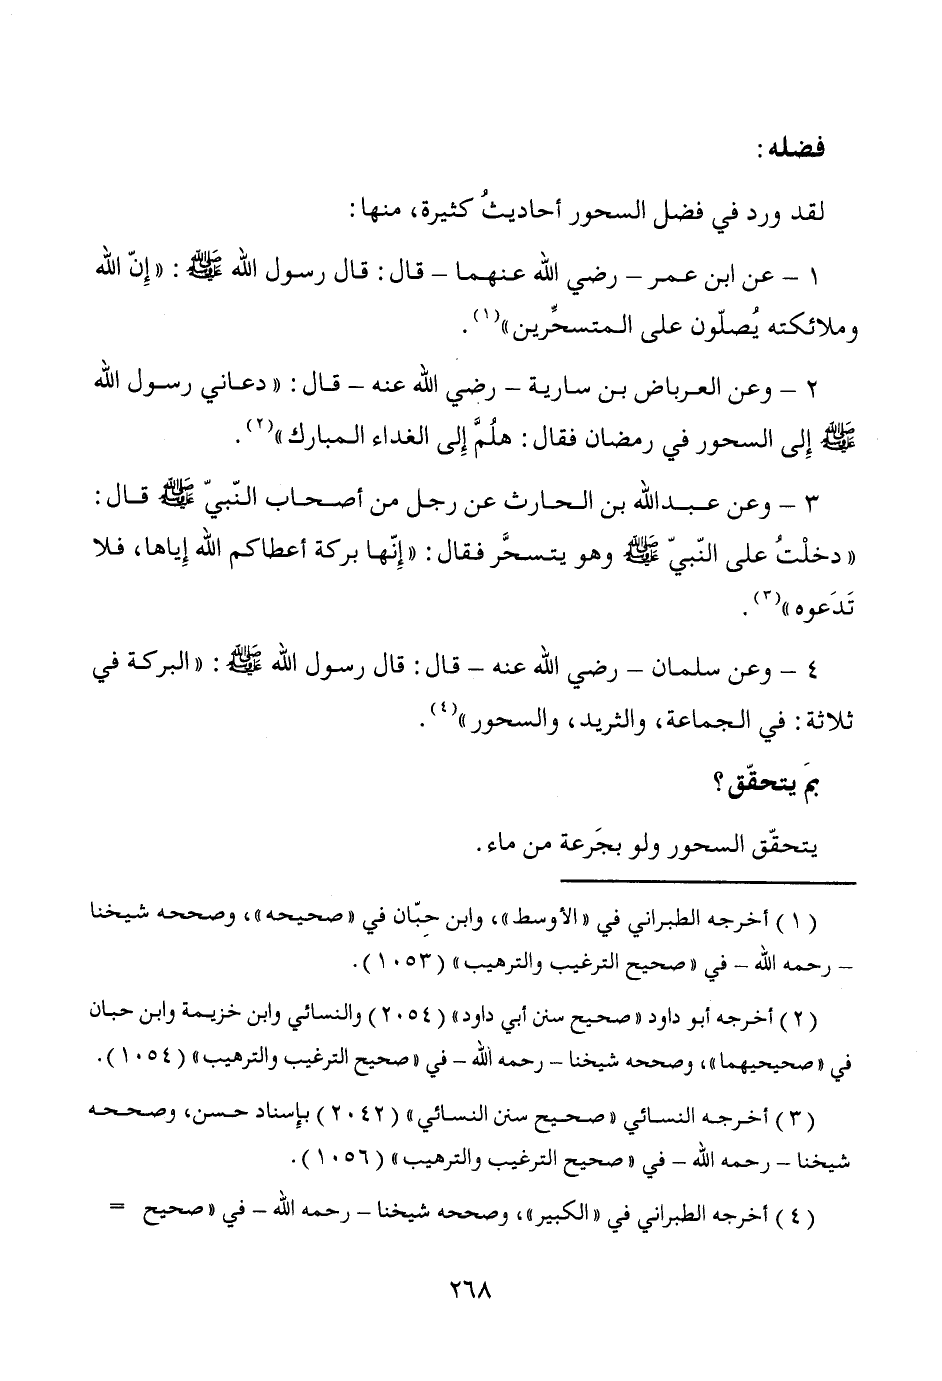 فضله :
لقد ورد في فضل السحور أحاديثُ كثيرة، منها:
١ - عن ابن عمر - رضي الله عنهما - قال: قال رسول الله ﷺ: «إنّ الله
وملائكته يُصلّون على المتسحِّرين»(١).
٢ - وعن العرباض بن سارية - رضي الله عنه - قال: «دعاني رسول الله
ﷺ إلى السحور في رمضان فقال: هلُمَّ إلى الغداء المبارك»(٢).
٣ - وعن عبدالله بن الحارث عن رجل من أصحاب النّبيّ ﷺ قال:
«دخلْتُ على النّبيّ ﷺ وهو يتسحَّر فقال: «إنّها بركة أعطاكم الله إياها، فلا
تَدَعوه»(٣).
٤ - وعن سلمان - رضي الله عنه - قال: قال رسول الله ﷺ: «البركة في
ثلاثة: في الجماعة، والثريد، والسحور»(٤).
بمَ يتحقّق؟
يتحقّق السحور ولو بجَرعة من ماء.
(١) أخرجه الطبراني في «الأوسط»، وابن حِبّان في «صحيحه»، وصححه شيخنا
- رحمه الله - في «صحيح الترغيب والترهيب» (١٠٥٣).
(٢) أخرجه أبو داود «صحيح سنن أبي داود» (٢٠٥٤) والنسائي وابن خزيمة وابن حبان
في «صحيحيهما»، وصححه شيخنا - رحمه الله - في «صحيح الترغيب والترهيب» (١٠٥٤).
(٣) أخرجه النسائي «صحيح سنن النسائي» (٢٠٤٢) بإسناد حسن، وصححه
شيخنا - رحمه الله - في «صحيح الترغيب والترهيب» (١٠٥٦).
(٤) أخرجه الطبراني في «الكبير»، وصححه شيخنا - رحمه الله - في «صحيح =
٢٦٨